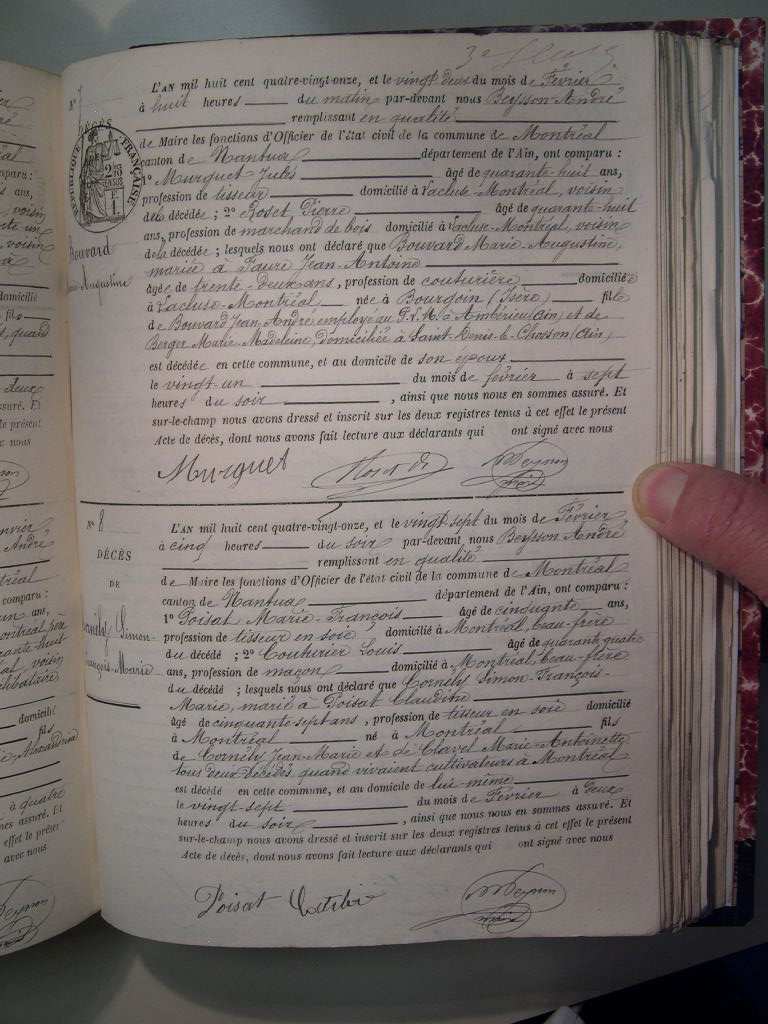 N° 7
L'AN mil huit cent quatre-vingt-onze, et le vingt deux du mois de Février
à huit heures du matin par-devant nous Beysson André
remplissant en qualité
DÉCÈS
RÉPUBLIQUE FRANÇAISE
de Maire les fonctions d'Officier de l'état civil de la commune de Montréal
canton de Nantua département de l'Ain, ont comparu :
1° Murguet Jules âgé de quarante-huit ans,
profession de tisseur domicilié à Lacluse-Montréal, voisin
de la décédée ; 2° Roset Pierre âgé de quarante-huit
ans, profession de marchand de bois domicilié à Lacluse-Montréal, voisin
de la décédée ; lesquels nous ont déclaré que Bouvard Marie-Augustine,
Bouvard
Augustine
mariée à Faure Jean-Antoine
âgée de trente-deux ans, profession de couturière domiciliée
à Lacluse-Montréal, née à Bourgoin (Isère) fille
de Bouvard Jean André employé au P.L.M. à Ambérieu (Ain) et de
Berger Marie Madeleine, domiciliée à Saint-Denis-le-Chosson (Ain)
est décédée en cette commune, et au domicile de son époux
le vingt-un du mois de février à sept
heures du soir, ainsi que nous nous en sommes assuré. Et
sur-le-champ nous avons dressé et inscrit sur les deux registres tenus à cet effet le présent
Acte de décès, dont nous avons fait lecture aux déclarants qui ont signé avec nous
Murguet
N° 8
DÉCÈS
DE
Cornély Simon-
François-Marie
L'AN mil huit cent quatre-vingt-onze, et le vingt-sept du mois de Février
à cinq heures du soir par-devant nous Beysson André
remplissant en qualité
de Maire les fonctions d'Officier de l'état civil de la commune de Montréal
canton de Nantua département de l'Ain, ont comparu :
1° Poisat Marie-François âgé de cinquante ans,
profession de tisseur en soie, domicilié à Montréal, beau-frère
du décédé ; 2° Couturier Louis âgé de quarante quatre
ans, profession de maçon domicilié à Montréal, beau-frère
du décédé ; lesquels nous ont déclaré que Cornély Simon-François-
Marie, marié à Poisat Claudine
âgé de cinquante sept ans, profession de tisseur en soie domicilié
à Montréal né à Montréal fils
de Cornély Jean-Marie et de Clavel Marie-Antoinette
tous deux décédés quand vivaient cultivateurs à Montréal
est décédé en cette commune, et au domicile de lui même
le vingt-sept du mois de Février à deux
heures du soir, ainsi que nous nous en sommes assuré. Et
sur-le-champ nous avons dressé et inscrit sur les deux registres tenus à cet effet le présent
Acte de décès, dont nous avons fait lecture aux déclarants qui ont signé avec nous
Poisat